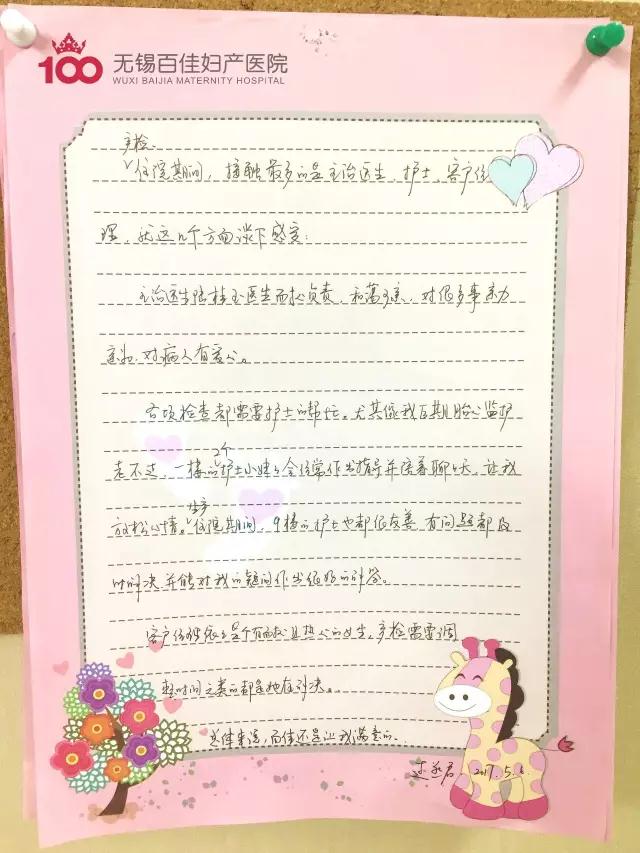 100 无锡百佳妇产医院
WUXI BAIJIA MATERNITY HOSPITAL
产检、
住院期间，接触最多的是主治医生、护士、客户经
理，就这几个方面谈下感受：
主治医生陈桂玉医生耐心负责，和蔼可亲，对很多事亲力
亲为，对病人有爱心。
各项检查都需要护士的帮忙。尤其像我后期胎心监护
老不过，一楼的2个护士小姐会经常作出指导并陪着聊天，让我
放松心情。生产住院期间，9楼的护士也都很友善 有问题都及
时解决 并能对我的疑问作出很好的解答。
客户经理 是个有耐心且热心的女生，产检需要调
整时间之类的都是她在解决。
总体来说，百佳还是让我满意的。
2017.5.6